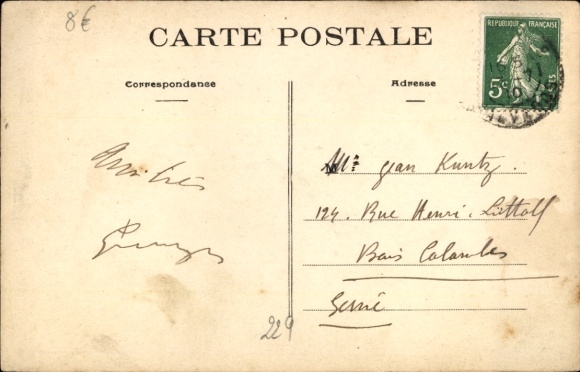 8€
CARTE POSTALE
RÉPUBLIQUE FRANÇAISE
5c
Correspondance
Adresse
Amitiés
Mr Jean Kuntz.
124. Rue Henri. Littolf
Bois Colombes
Seine
229